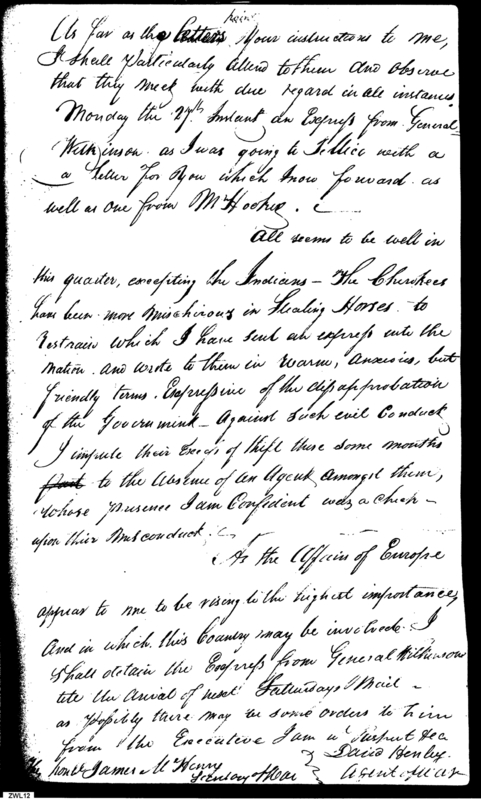 As far as the letters your instructions to me,
I shall particularly attend to them and observe
that they meet with due regard in all instances
Monday the 27th Instant an Express from General
Wilkinson as I was going to Tellico with a
a letter for you which I now forward as
well as one from Mr Hooker.
All seems to be well in
this quarter, excepting the Indians – The Cherokees
have been more Mischivous in Stealing Horses. to
restrain which I have sent an express into the
Nation and wrote to them in warm, Anxious, but
friendly terms. Expressive of the dissapprobation
of the Government – Against such evil Conduct
I impute their Excess of theft these some months
to the Absence of an Agent amongst them,
whose presence I am Confident was a check –
upon their Misconduct.
As the Affairs of Europe
appear to me to be rising to the highest importance,
And in which this Country may be involved. I
shall detain the Express from General Wilkinson
till the Arival of next Satturdays Mail –
as possibly there may be some orders to him
from the Executive I am
David Henley
The honble James McHenry
Secretary of War
Agent of War
ZWL12